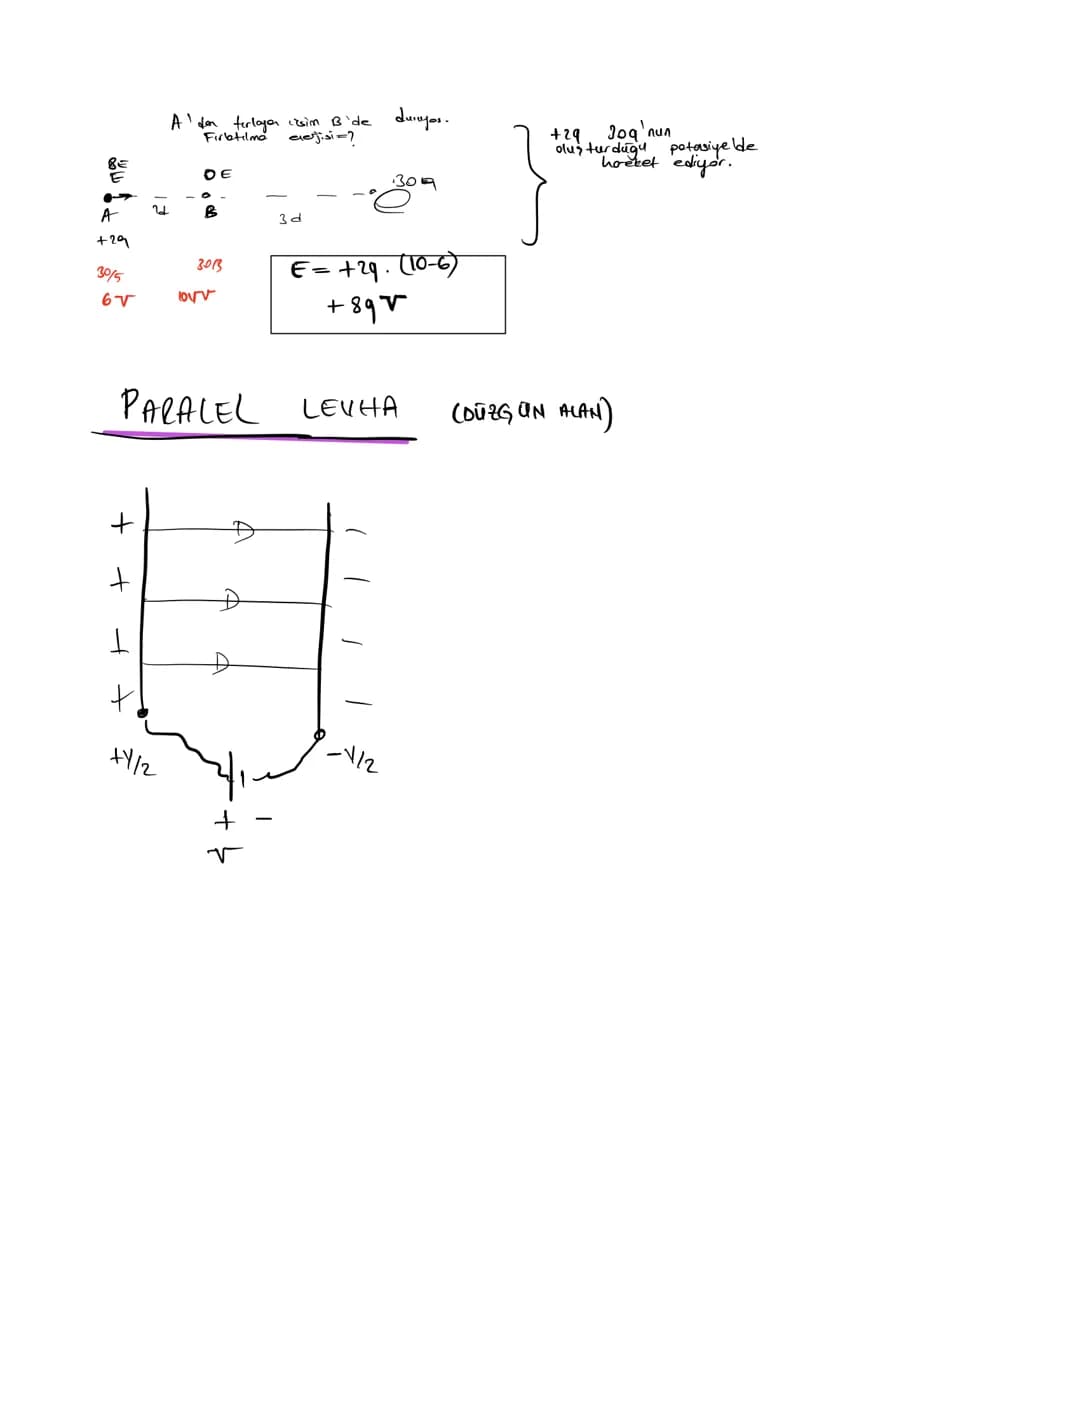 A'dan fırlayan cisim B'de duruyor.
Fırlatılma enerjisi=?
+2q 30q'nun
oluşturduğu potasiyelde
hareket ediyor.
8E
E
0E
30q
A
2d
B
3d
+2q
30/5
30/3
6V
10V
E = +2q . (10-6)
+ 8qV
PARALEL LEVHA (DÜZGÜN ALAN)
+ -
+ -
+ -
+ -
+V/2
-V/2
+ -
V